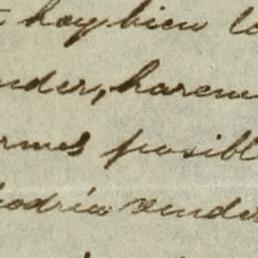 hoy bien lo
nder, harem
rmes posibl
podria vender